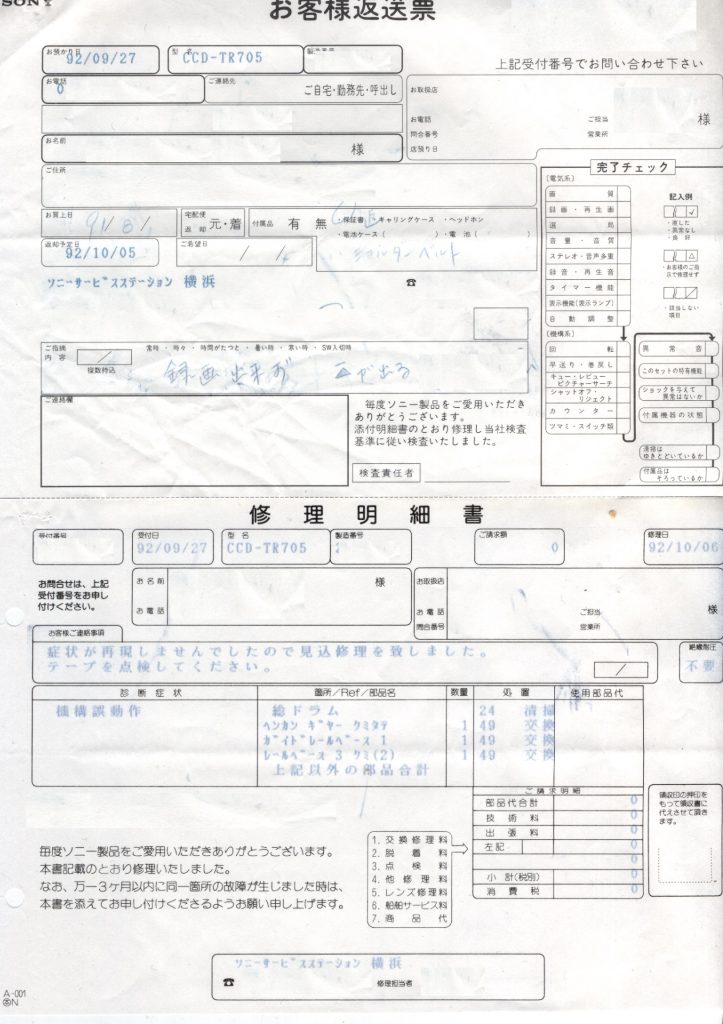 SONY
お客様返送票
お預かり日 92/09/27 型名 CCD-TR705
上記受付番号でお問い合わせ下さい
お電話 0 ご連絡先 ご自宅・勤務先・呼出し
お取扱店 様
お電話 ご担当
問合番号 営業所
店預り日
お名前 様
ご住所
完了チェック
お買上日 91/8/
宅配便 返却 元・着
付属品 有 無 ・保証書 ・キャリングケース ・ヘッドホン
・電池ケース( ) ・電池( )
ショルダーベルト
返却予定日 92/10/05 ご希望日 / /
ソニーサービスステーション 横浜
☎
[電気系]
画質
録画・再生画
選局
音量・音質
ステレオ・音声多重
録音・再生音
タイマー機能
表示機能(表示ランプ)
自動調整
[機構系]
回転
早送り・巻戻し
キュー・レビュー ピクチャーサーチ
シャットオフ・リジェクト
カウンター
ツマミ・スイッチ類
記入例
・直した
・異常なし
・良好
・お客様のご指示で修理せず
・該当しない項目
異常音
このセットの特有機能
ショックを与えて異常はないか
付属機器の状態
清掃はゆきとどいているか
付属品はそろっているか
ご指摘内容 複数持込 常時・時々・時間がたつと・暑い時・寒い時・SW入切時
録画出来ず △が出る
ご連絡欄
毎度ソニー製品をご愛用いただき
ありがとうございます。
添付明細書のとおり修理し当社検査
基準に従い検査いたしました。
検査責任者
修理明細書
受付番号 受付日 92/09/27 型名 CCD-TR705 製造番号 ご請求額 0 修理日 92/10/06
お問合せは、上記
受付番号をお申し
付けください。
お名前 様
お電話
お取扱店 様
お電話 ご担当
問合番号 営業所
お客様ご連絡事項
症状が再現しませんでしたので見込修理を致しました。
テープを点検してください。
絶縁耐圧 不要
診断症状 箇所/Ref/部品名 数量 処置 使用部品代
機構誤動作 総ドラム 24 清掃
ヘンカン ギヤー クミタテ 1 49 交換
ガイドレールベース 1 1 49 交換
レールベース 3 クミ(2) 1 49 交換
上記以外の部品合計
ご請求明細
部品代合計 0
技術料 0
出張料 0
左記 0
0
小計(税別) 0
消費税 0
領収印の押印を
もって領収書に
代えさせて頂き
ます。
1. 交換修理料
2. 脱着料
3. 点検料
4. 他修理料
5. レンズ修理料
6. 船舶サービス料
7. 商品代
毎度ソニー製品をご愛用いただきありがとうございます。
本書記載のとおり修理いたしました。
なお、万一3ヶ月以内に同一箇所の故障が生じました時は、
本書を添えてお申し付けくださるようお願い申し上げます。
ソニーサービスステーション 横浜
☎ 修理担当者
A-001